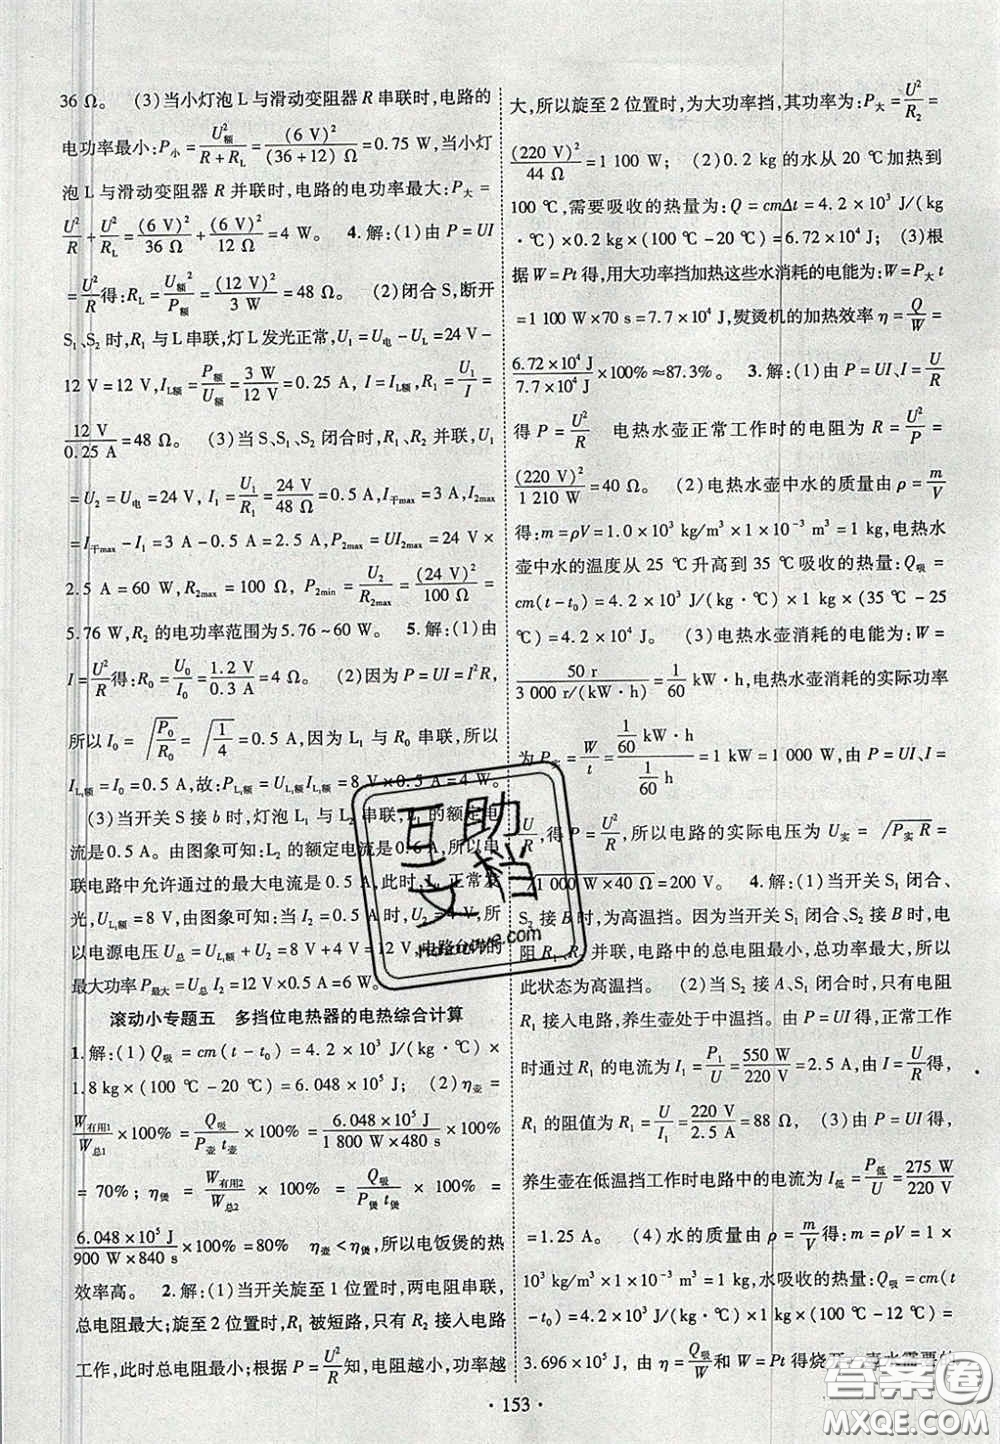 36 Ω。 (3)当小灯泡 L 与滑动变阻器 R 串联时,电路的
电功率最小:P小=U额²/(R+RL)=(6 V)²/((36+12) Ω)=0.75 W,当小灯
泡 L 与滑动变阻器 R 并联时,电路的电功率最大:P大=
U²/R+U²/RL=(6 V)²/36 Ω+(6 V)²/12 Ω=4 W。 4.解:(1)由 P=UI
=U²/R得:RL=U额²/P额=(12 V)²/3 W=48 Ω。 (2)闭合 S,断开
S1、S2 时,R1 与 L 串联,灯 L 发光正常,U1=U电-UL=24 V-
12 V=12 V,IL额=P额/U额=3 W/12 V=0.25 A,I=IL额,R1=U1/I=
12 V/0.25 A=48 Ω。 (3)当 S、S1、S2 闭合时,R1、R2 并联,U1
=U2=U电=24 V,I1=U1/R1=24 V/48 Ω=0.5 A,I干max=3 A,I2max
=I干max-I1=3 A-0.5 A=2.5 A,P2max=UI2max=24 V×
2.5 A=60 W,R2max=100 Ω,P2min=U2/R2max=(24 V)²/100 Ω=
5.76 W,R2 的电功率范围为 5.76~60 W。 5.解:(1)由
I=U²/R得:R0=U0/I0=1.2 V/0.3 A=4 Ω。 (2)因为 P=UI=I²R,
所以 I0=√(P0/R0)=√(1/4)=0.5 A,因为 L1 与 R0 串联,所以
IL1额=I0=0.5 A,故:PL1额=UL1额IL1额=8 V×0.5 A=4 W。
(3)当开关 S 接 b 时,灯泡 L1 与 L2 串联,L1 的额定电
流是 0.5 A。由图象可知:L2 的额定电流是 0.6 A,所以串
联电路中允许通过的最大电流是 0.5 A,此时,L1 正常发
光,UL1额=8 V,由图象可知,当 I2=0.5 A 时,U2=4 V,所
以电源电压 U总=UL1额+U2=8 V+4 V=12 V,电路允许的
最大功率 P最大=U总I=12 V×0.5 A=6 W。
滚动小专题五 多挡位电热器的电热综合计算
1.解:(1)Q吸=cm(t-t0)=4.2×10³ J/(kg·℃)×
1.8 kg×(100 ℃-20 ℃)=6.048×10⁵ J; (2)η壶=
W有用1/W总1×100%=Q吸/(P壶t壶)×100%=6.048×10⁵ J/(1 800 W×480 s)×100%
=70%;η煲=W有用2/W总2×100%=Q吸/(P煲t煲)×100%=
6.048×10⁵ J/(900 W×840 s)×100%=80% η壶<η煲,所以电饭煲的热
效率高。 2.解:(1)当开关旋至 1 位置时,两电阻串联,
总电阻最大;旋至 2 位置时,R1 被短路,只有 R2 接入电路
工作,此时总电阻最小;根据 P=U²/R知,电阻越小,功率越
大,所以旋至 2 位置时,为大功率挡,其功率为:P大=U²/R2=
(220 V)²/44 Ω=1 100 W; (2)0.2 kg 的水从 20 ℃加热到
100 ℃,需要吸收的热量为:Q=cmΔt=4.2×10³ J/(kg
·℃)×0.2 kg×(100 ℃-20 ℃)=6.72×10⁴ J; (3)根
据 W=Pt 得,用大功率挡加热这些水消耗的电能为:W=P大t
=1 100 W×70 s=7.7×10⁴ J,熨烫机的加热效率 η=Q/W=
6.72×10⁴ J/7.7×10⁴ J×100%≈87.3%。 3.解:(1)由 P=UI、I=U/R
得 P=U²/R 电热水壶正常工作时的电阻为 R=U²/P=
(220 V)²/1 210 W=40 Ω。 (2)电热水壶中水的质量由 ρ=m/V
得:m=ρV=1.0×10³ kg/m³×1×10⁻³ m³=1 kg,电热水
壶中水的温度从 25 ℃升高到 35 ℃吸收的热量:Q吸=
cm(t-t0)=4.2×10³ J/(kg·℃)×1 kg×(35 ℃-25
℃)=4.2×10⁴ J。 (3)电热水壶消耗的电能为:W=
50 r/(3 000 r/(kW·h))=1/60 kW·h,电热水壶消耗的实际功率
为 P实=W/t=(1/60 kW·h)/(1/60 h)=1 kW=1 000 W,由 P=UI、I=
U/R,得 P=U²/R,所以电路的实际电压为 U实=√(P实R)=
√(1 000 W×40 Ω)=200 V。 4.解:(1)当开关 S1 闭合、
S2 接 B 时,为高温挡。当开关 S1 闭合、S2 接 B 时,电
阻 R1、R2 并联,电路中的总电阻最小,总功率最大,所以
此状态为高温挡。 (2)当 S2 接 A、S1 闭合时,只有电阻
R1 接入电路,养生壶处于中温挡。由 P=UI 得,正常工作
时通过 R1 的电流为 I1=P1/U=550 W/220 V=2.5 A,由 I=U/R得,
R1 的阻值为 R1=U/I1=220 V/2.5 A=88 Ω。 (3)由 P=UI 得,
养生壶在低温挡工作时电路中的电流为 I低=P低/U=275 W/220 V
=1.25 A。 (4)水的质量由 ρ=m/V得:m=ρV=1×
10³ kg/m³×1×10⁻³ m³=1 kg,水吸收的热量:Q吸=cm(t
-t0)=4.2×10³ J/(kg·℃)×1 kg×(100 ℃-12 ℃)=
3.696×10⁵ J,由 η=Q吸/W和 W=Pt 得烧开一壶水需要的
· 153 ·
互助文档
答案圈
MXQE.COM